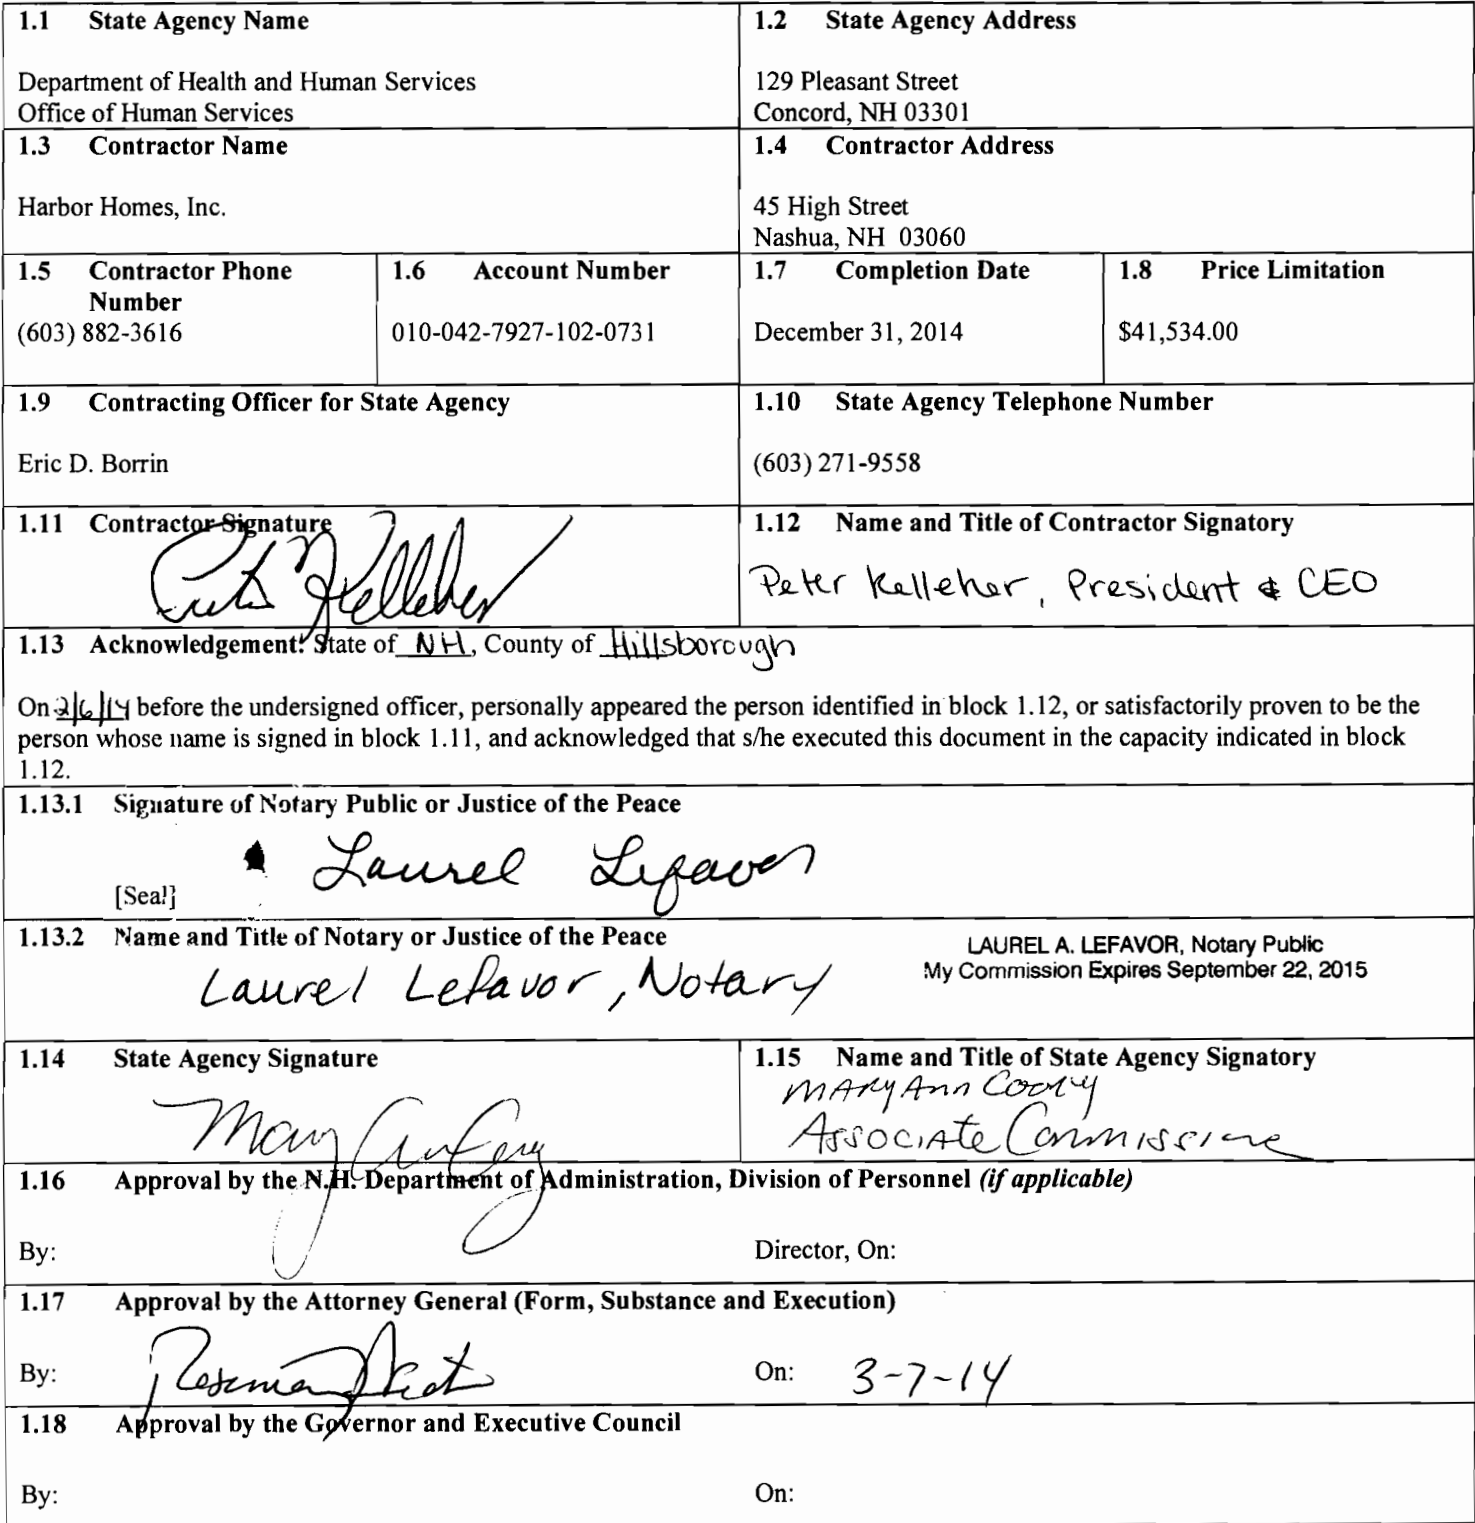 1.1 State Agency Name
1.2 State Agency Address
Department of Health and Human Services
Office of Human Services
129 Pleasant Street
Concord, NH 03301
1.3 Contractor Name
1.4 Contractor Address
Harbor Homes, Inc.
45 High Street
Nashua, NH 03060
1.5 Contractor Phone
Number
(603) 882-3616
1.6 Account Number
010-042-7927-102-0731
1.7 Completion Date
December 31, 2014
1.8 Price Limitation
$41,534.00
1.9 Contracting Officer for State Agency
Eric D. Borrin
1.10 State Agency Telephone Number
(603) 271-9558
1.11 Contractor Signature
1.12 Name and Title of Contractor Signatory
Peter Kelleher, President & CEO
1.13 Acknowledgement: State of NH, County of Hillsborough
On 2/6/14 before the undersigned officer, personally appeared the person identified in block 1.12, or satisfactorily proven to be the
person whose name is signed in block 1.11, and acknowledged that s/he executed this document in the capacity indicated in block
1.12.
1.13.1 Signature of Notary Public or Justice of the Peace
Laurel Lefavor
[Seal]
1.13.2 Name and Title of Notary or Justice of the Peace
Laurel Lefavor, Notary
LAUREL A. LEFAVOR, Notary Public
My Commission Expires September 22, 2015
1.14 State Agency Signature
1.15 Name and Title of State Agency Signatory
Mary Ann Cooney
Associate Commissioner
1.16 Approval by the N.H. Department of Administration, Division of Personnel (if applicable)
By:
Director, On:
1.17 Approval by the Attorney General (Form, Substance and Execution)
By:
On: 3-7-14
1.18 Approval by the Governor and Executive Council
By:
On: